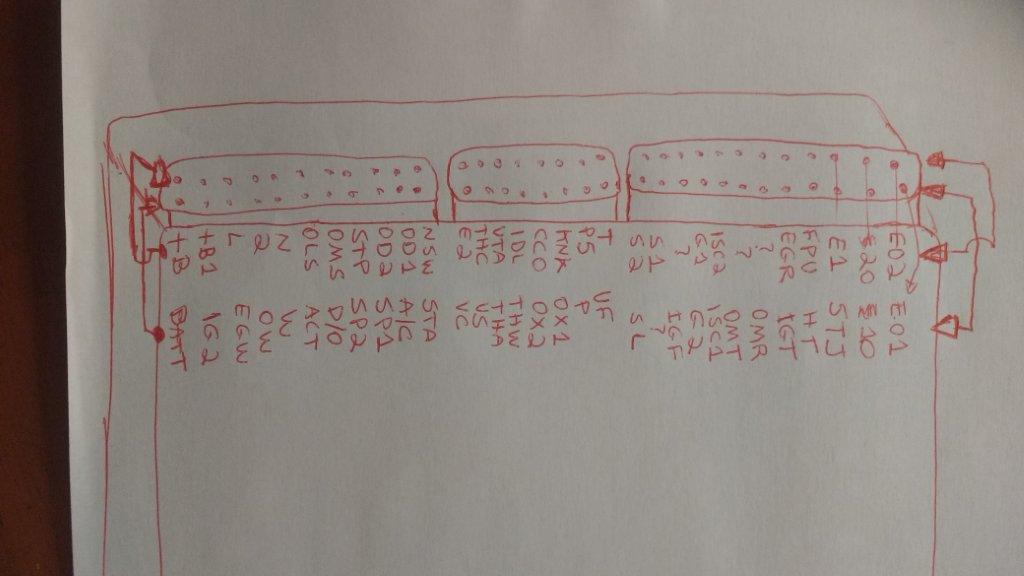 E02 E01
E20 E10
E1 STJ
FPU HT
EGR IGT
? OMR
? OMT
ISC2 ISC1
G1 G2
? IGF
S1 ?
S2 SL
T VF
PS P
HNK OX1
CCO OX2
IDL THW
VTA THA
THC VS
E2 VC
NSW STA
DD1 A/C
DD2 SP1
STP SP2
OMS D/O
OLS ACT
N W
2 OW
L EGW
+B1 IG2
+B BATT